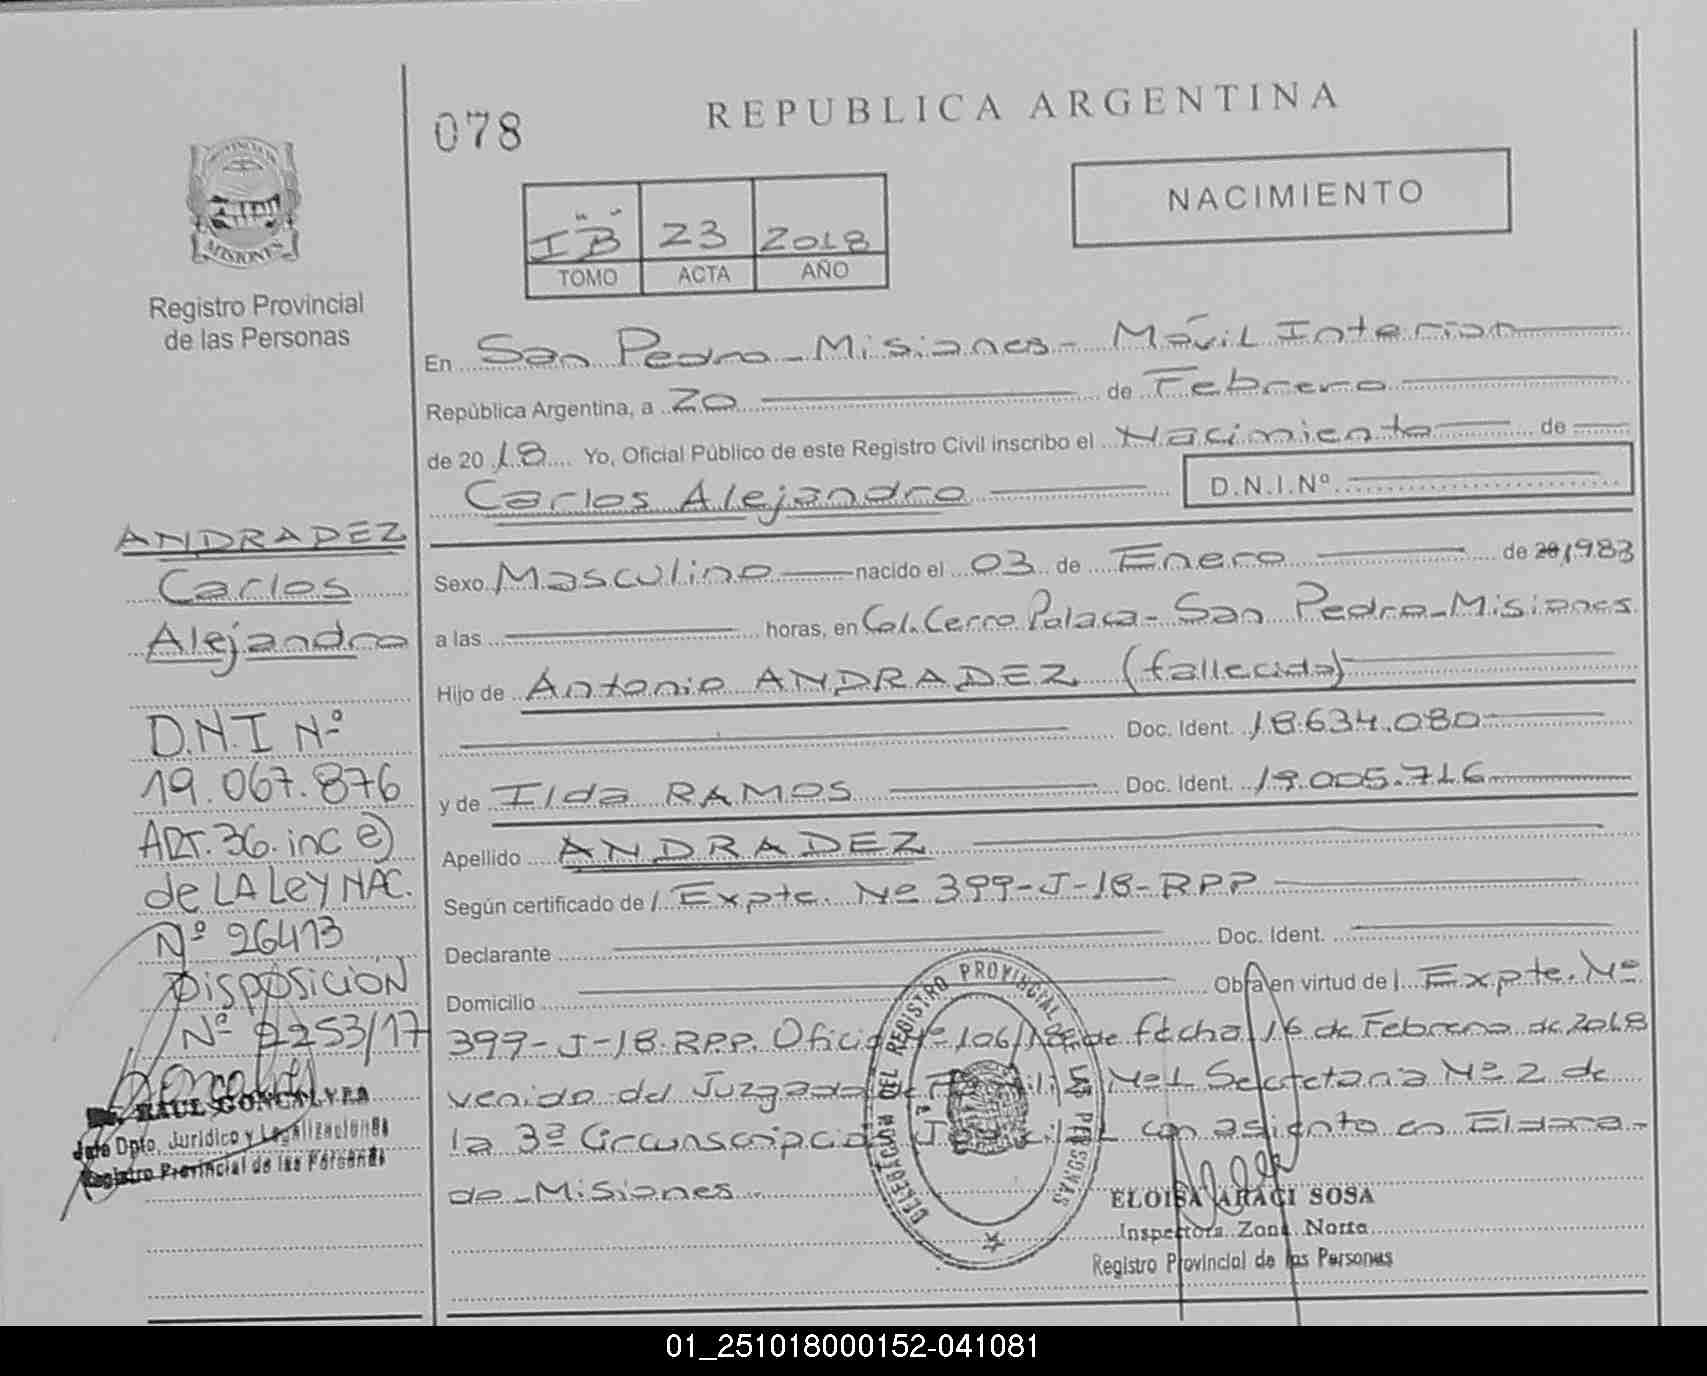 078
REPUBLICA ARGENTINA
NACIMIENTO
PROVINCIA DE
MISIONES
Registro Provincial
de las Personas
I "B" 23 2018
TOMO ACTA AÑO
En San Pedro - Misiones - Móvil Interior
República Argentina, a 20 de Febrero
de 2018 Yo, Oficial Público de este Registro Civil inscribo el Nacimiento de
Carlos Alejandro D.N.I.Nº
Sexo Masculino nacido el 03 de Enero de 20 1983
a las horas, en Col. Cerro Polaca - San Pedro - Misiones
Hijo de Antonio ANDRADEZ (fallecido)
Doc. Ident. 18.634.080
y de Ilda RAMOS Doc. Ident. 19.005.716
Apellido ANDRADEZ
Según certificado de / Expte. Nº 399-J-18-RPP
Declarante Doc. Ident.
Domicilio Obra en virtud de / Expte. Nº
399-J-18-R.P.P. Oficio Nº 106/18 de fecha 16 de Febrero de 2018
venido del Juzgado de Familia Nº1 Secretaria Nº 2 de
la 3ª Circunscripción Judicial con asiento en Eldora-
do - Misiones.
DELEGACION DEL REGISTRO PROVINCIAL DE LAS PERSONAS
ELOISA ARACI SOSA
Inspectora Zona Norte
Registro Provincial de las Personas
ANDRADEZ
Carlos
Alejandro
D.N.I Nº
19.067.876
ART. 36. inc e)
de LA LeY NAC.
Nº 26413
DISPOSICION
Nº 2253/17
RAUL GONCALVES
Jefe Dpto. Jurídico y Legalizaciones
Registro Provincial de las Personas
01_251018000152-041081